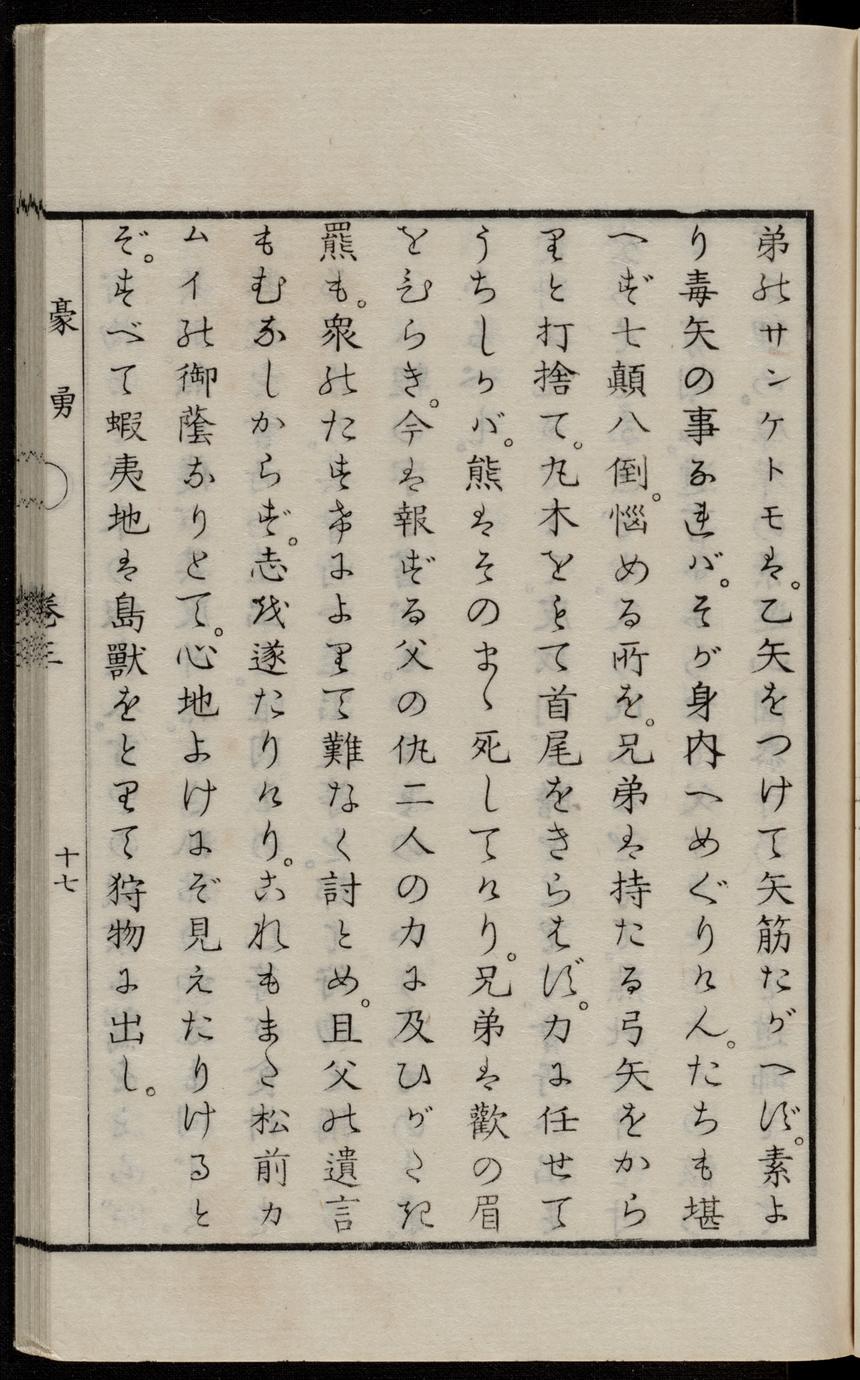 弟のサンケトモは。乙矢をつけて矢筋たがへず。素よ
り毒矢の事なれば。そが身内へめぐりけん。たちも堪
へず七顛八倒。悩める所を。兄弟は持たる弓矢をから
りと打捨て。丸木をもて首尾をきらはず。力に任せて
うちしかば。熊はそのまゝ死してけり。兄弟は歡の眉
をひらき。今は報ずる父の仇二人の力に及ひがたき
羆も。衆のたすけによりて難なく討とめ。且父の遺言
もむなしからず。志を遂たりけり。これもまた松前カ
ムイの御蔭なりとて。心地よけにぞ見えたりけると
ぞ。すべて蝦夷地は島獸をとりて狩物に出し。
豪勇
卷三
十七